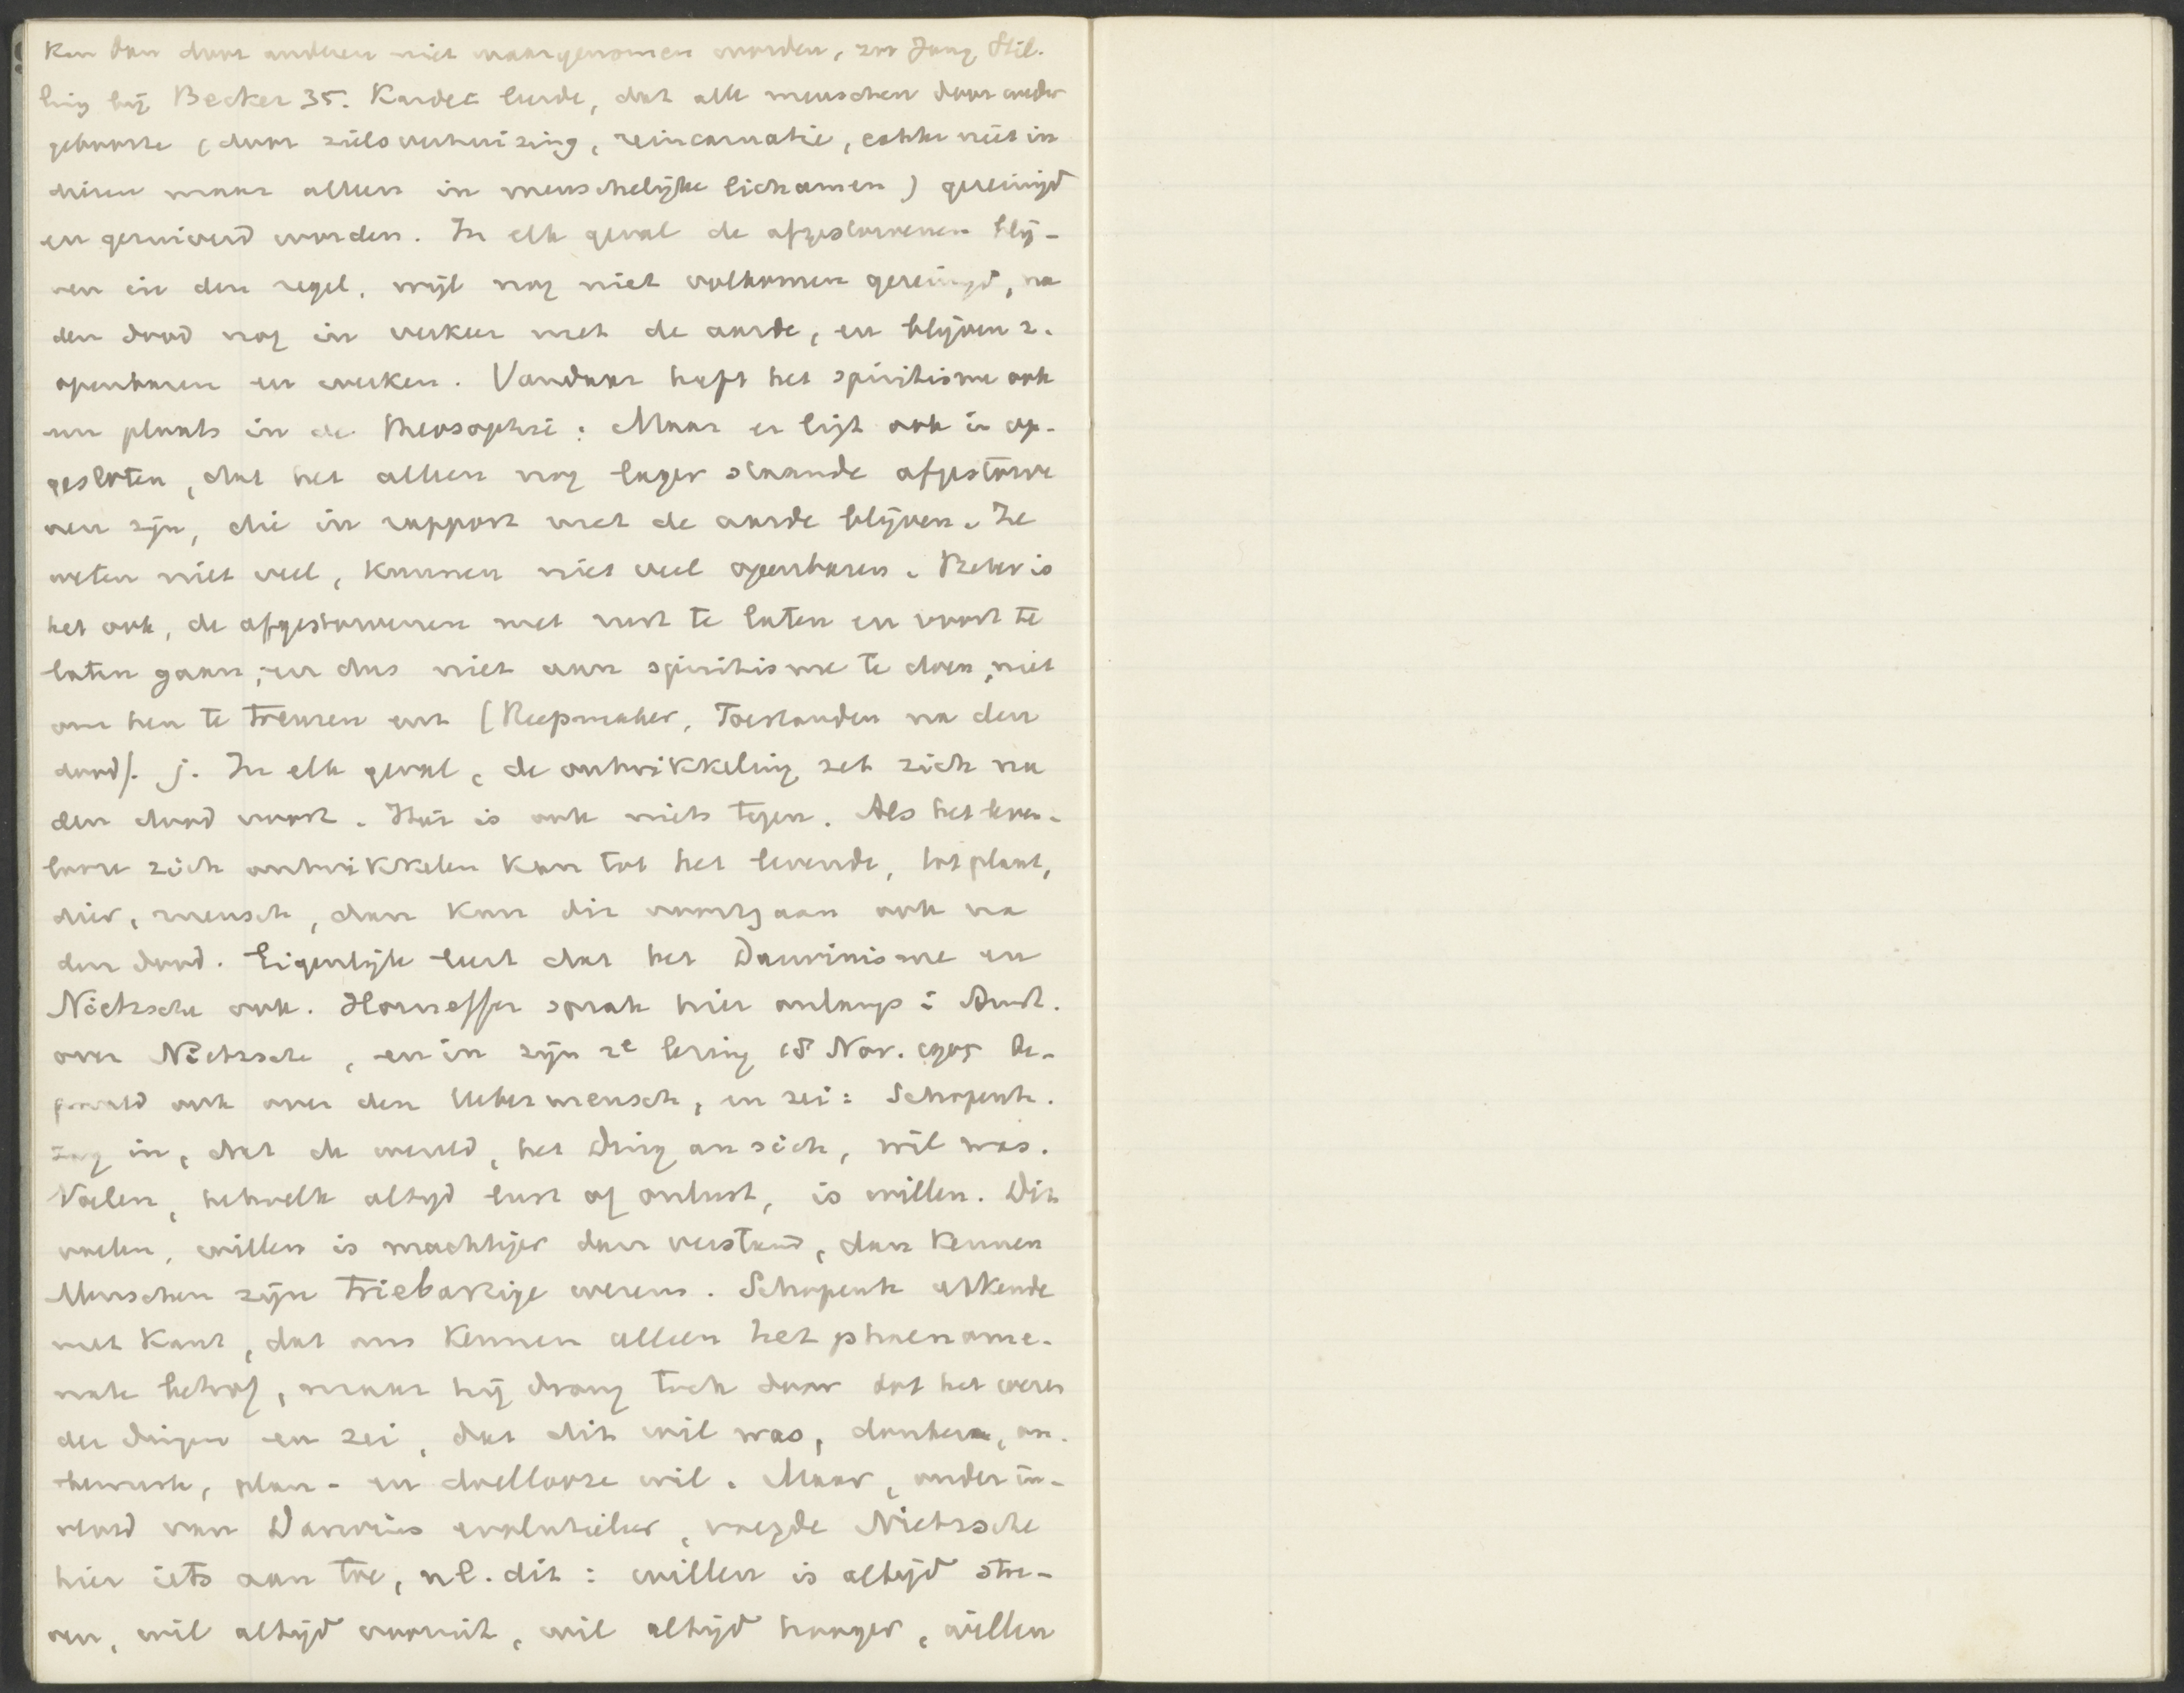 kan dan door anderen niet waargenomen worden, zoo Jung Stil-
ling bij Becker 35. Kardec leerde, dat alle menschen door weder
geboorte (door zielsverhuizing, reincarnatie, echter niet in
dieren maar alleen in menschelijke lichamen) gereinigd
en gernieuwd worden. In elk geval de afgestorvenen blij-
ven in den regel, wijl nog niet volkomen gereinigd, na
den dood nog in verkeer met de aarde, en blijven z.
openbaren en werken. Vandaar heeft het spiritisme ook
een plaats in de theosophie: Maar er ligt ook in op-
gesloten, dat het alleen nog lager staande afgestorve
nen zijn, die in rapport met de aarde blijven. Ze
weten niet veel, kunnen niet veel openbaren. Beter is
het ook, de afgestorvenen met rust te laten en voort te
laten gaan, en dus niet aan spiritisme te doen, niet
om hen te treuren enz (Reepmaker, Toestanden na den
dood). j. In elk geval, de ontwikkeling zet zich na
den dood voort. Hier is ook niets tegen. Als het leven-
looze zich ontwikkelen kan tot het levende, tot plant,
dier, mensch, dan kan dit voortgaan ook na
den dood. Eigenlijk leert dat het Darwinisme en
Nietzsche ook. Horneffer sprak hier onlangs i Amst.
over Nietzsche, en in zijn 2e lezing 18 Nov. 1905 be-
paald ook over den Uebermensch, en zei: Schopenh.
zag in, dat de wereld, het Ding an sich, wil was.
Voelen, hetwelk altijd lust of onlust, is willen. Dit
voelen, willen is machtiger dan verstand, dan kennen
Menschen zijn triebartige wezens. Schopenh erkende
met Kant, dat ons kennen alleen het phaenome-
nale betrof, maar hij drong toch door tot het wezen
der dingen en zei, dat dit wil was, donkere, on-
bewuste, plan- en doellooze wil. Maar, onder in-
vloed van Darwins evolutieleer, voegde Nietzsche
hier iets aan toe, nl. dit: willen is altijd stre-
ven, wil altijd vooruit, wil altijd hooger, willen